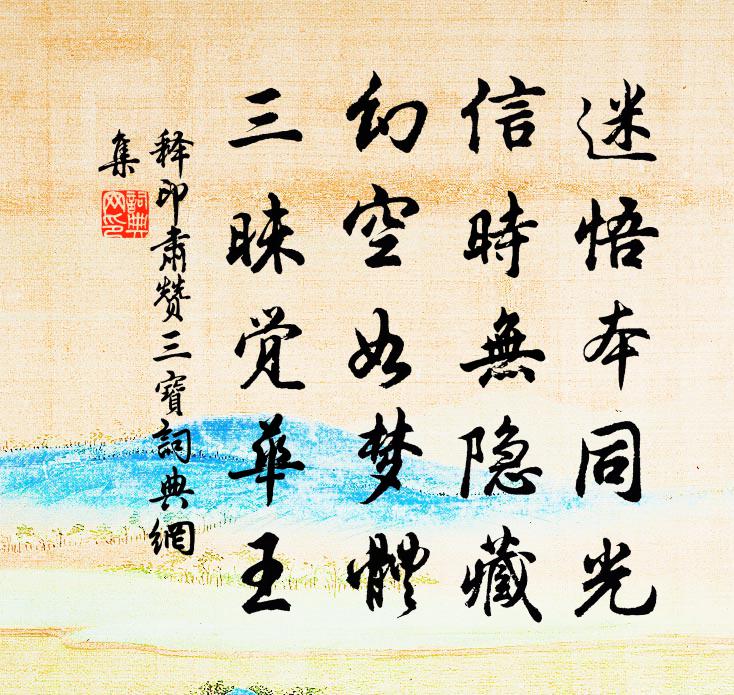 迷悟本同光
信時無隐藏
幻空如梦體
三昧觉華王
释印肃赞三寶詞典網
集
詞典
网印